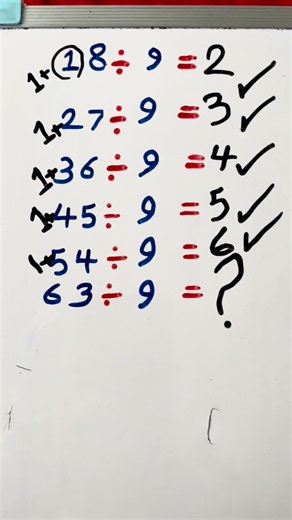 1+18÷9=2✓
1+27÷9=3✓
1+36÷9=4✓
1+45÷9=5✓
1+54÷9=6✓
63÷9=?